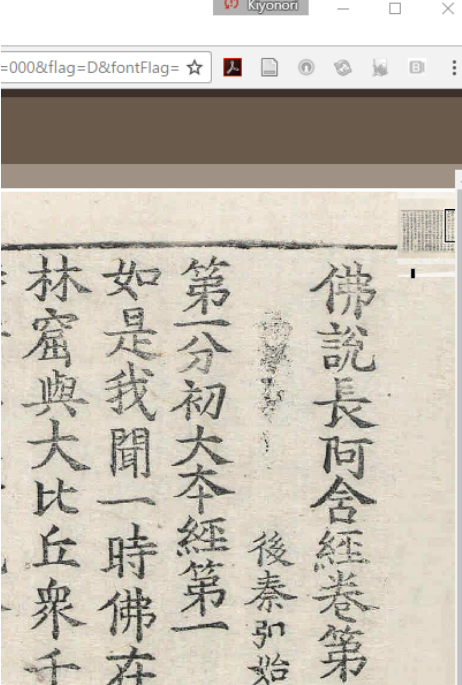 Kiyonori
=000&flag=D&fontFlag=
佛說長阿含經卷第
後秦弘始
第一分初大本經第一
如是我聞一時佛在
林窟與大比丘衆千